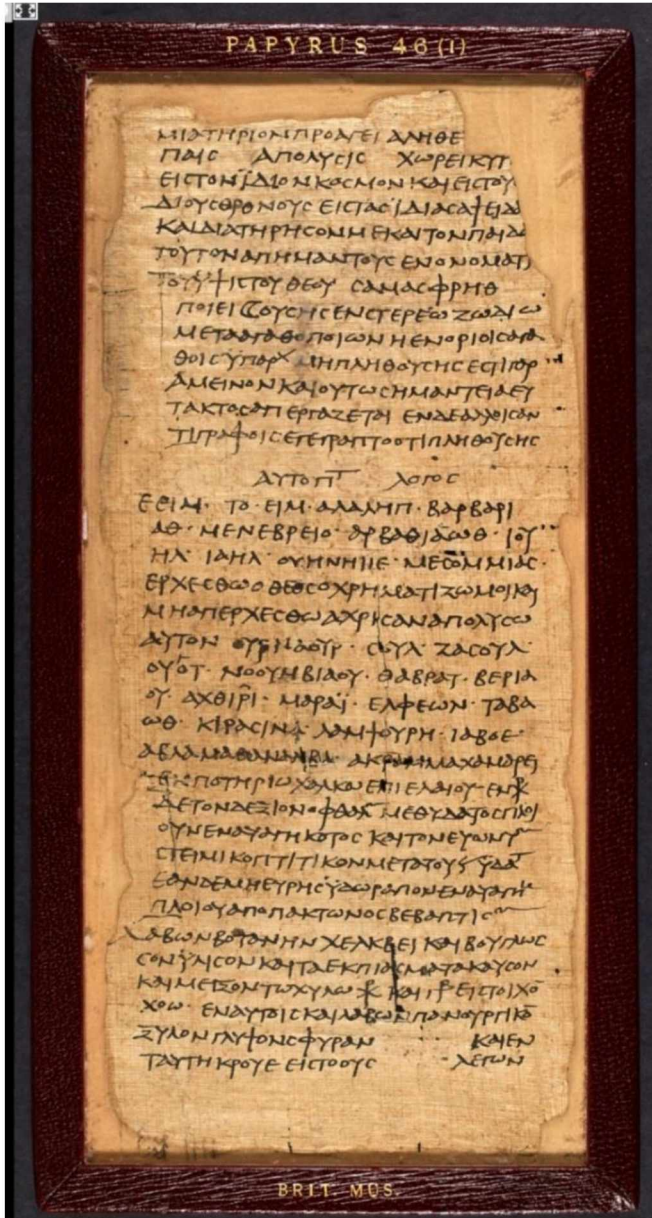 PAPYRUS 46(1)
ΜΙΑΤΗΡΙΟΝΠΡΟΑΓΕΙ ΑΛΗΘΕ
ΠΑΙΣ ΑΠΟΛΥΣΙΣ ΧΩΡΕΙΚΥΡ
ΕΙΣΤΟΝΪΔΙΟΝΚΟΣΜΟΝΚΑΙΕΙΣΤΟΥ
ΔΙΟΥΣΘΡΟΝΟΥΣ ΕΙΣΤΑΣΪΔΙΑΣΑΨΕΙΔΑ
ΚΑΙΔΙΑΤΗΡΗΣΟΝΜΕΚΑΙΤΟΝΠΑΙΔΑ
ΤΟΥΤΟΝΑΠΗΜΑΝΤΟΥΣ ΕΝΟΝΟΜΑΤΙ
ΤΟΥΫΨΙΣΤΟΥΘΕΟΥ ΣΑΜΑΣΦΡΗΘ
ΠΟΙΕΙ ☾ΟΥΣΗΣΕΝΣΤΕΡΕΩΖΩΔΙΩ
ΜΕΤΑΑΓΑΘΟΠΟΙΩΝΗΕΝΟΡΙΟΙΣΑΓΑ
ΘΟΙΣΫΠΑΡΧ ΜΗΠΛΗΘΟΥΣΗΣΕΣΤΙΓΑΡ
ΑΜΕΙΝΟΝΚΑΙΟΥΤΩΣΗΜΑΝΤΕΙΑΕΥ
ΤΑΚΤΟΣΑΠΕΡΓΑΖΕΤΑΙ ΕΝΔΕΑΛΛΟΙΣΑΝ
ΤΙΓΡΑΦΟΙΣΕΓΕΓΡΑΠΤΟΟΤΙΠΛΗΘΟΥΣΗΣ
ΑΥΤΟΠΤ ΛΟΓΟΣ
ΕΕΙΜ· ΤΟ·ΕΙΜ·ΑΛΑΛΗΠ·ΒΑΡΒΑΡΙ
ΑΘ·ΜΕΝΕΒΡΕΙΟ·ΑΡΒΑΘΙΑΩΘ·ΙΟΥ
ΗΛ·ΙΑΗΛ·ΟΥΗΝΗΙΙΕ·ΜΕΣΟΜΜΙΑΣ·
ΕΡΧΕΣΘΩΟΘΕΟΣΟΧΡΗΜΑΤΙΖΩΜΟΙΚΑΙ
ΜΗΑΠΕΡΧΕΣΘΩΑΧΡΙΣΑΝΑΠΟΛΥΣΩ
ΑΥΤΟΝ ΟΥΡΝΑΟΥΡ·ΣΟΥΛ·ΖΑΣΟΥΛ·
ΟΥΓΟΤ·ΝΟΟΥΜΒΙΑΟΥ·ΘΑΒΡΑΤ·ΒΕΡΙΑ
ΟΥ·ΑΧΘΙΡΙ·ΜΑΡΑΪ·ΕΛΦΕΩΝ·ΤΑΒΑ
ΩΘ·ΚΙΡΑΣΙΝΑ·ΛΑΜΨΟΥΡΗ·ΙΑΒΟΕ·
ΑΒΛΑΜΑΘΑΝΑΛΒΑ·ΑΚΡΑΜΜΑΧΑΜΑΡΕΙ
ΕΚΠΟΤΗΡΙΩΧΑΛΚΩΕΠΙΕΛΑΙΟΥ·ΕΝΧ
ΔΕΤΟΝΔΕΞΙΟΝΟΦΘΑΛ ΜΕΘΥΔΑΤΟΣΠΛΟΙ
ΟΥΝΕΝΑΥΑΓΗΚΟΤΟΣ ΚΑΙΤΟΝΕΥΩΝΥ
ΣΤΕΙΜΙΚΟΠΤΙΤΙΚΟΝΜΕΤΑΤΟΥ ΥΔΑΤ
ΕΑΝΔΕΜΗΕΥΡΗΣΫΔΩΡΑΠΟΝΕΝΑΥΑΓΗ
ΠΛΟΙΟΥΑΠΟΠΑΚΤΩΝΟΣΒΕΒΑΠΤΙΣ
ΛΑΒΩΝΒΟΤΑΝΗΝΧΕΛΚΒΕΙΚΑΙΒΟΥΓΛΩΣ
ΣΟΝΫΛΙΣΟΝΚΑΙΤΑΕΚΠΙΑΣΜΑΤΑΚΑΥΣΟΝ
ΚΑΙΜΕΙΞΟΝΤΩΧΥΛΩ ΚΑΙ ΕΙΣΤΟΙΧΟ
ΧΟΩ· ΕΝΑΥΤΟΙΣΚΑΙΛΑΒΩΝΠΑΝΟΥΡΓΙΚΟ
ΞΥΛΟΝΓΛΥΨΟΝΣΦΥΡΑΝ ΚΑΙΕΝ
ΤΑΥΤΗΚΡΟΥΕ ΕΙΣΤΟΟΥΣ ΛΕΓΩΝ
BRIT. MUS.